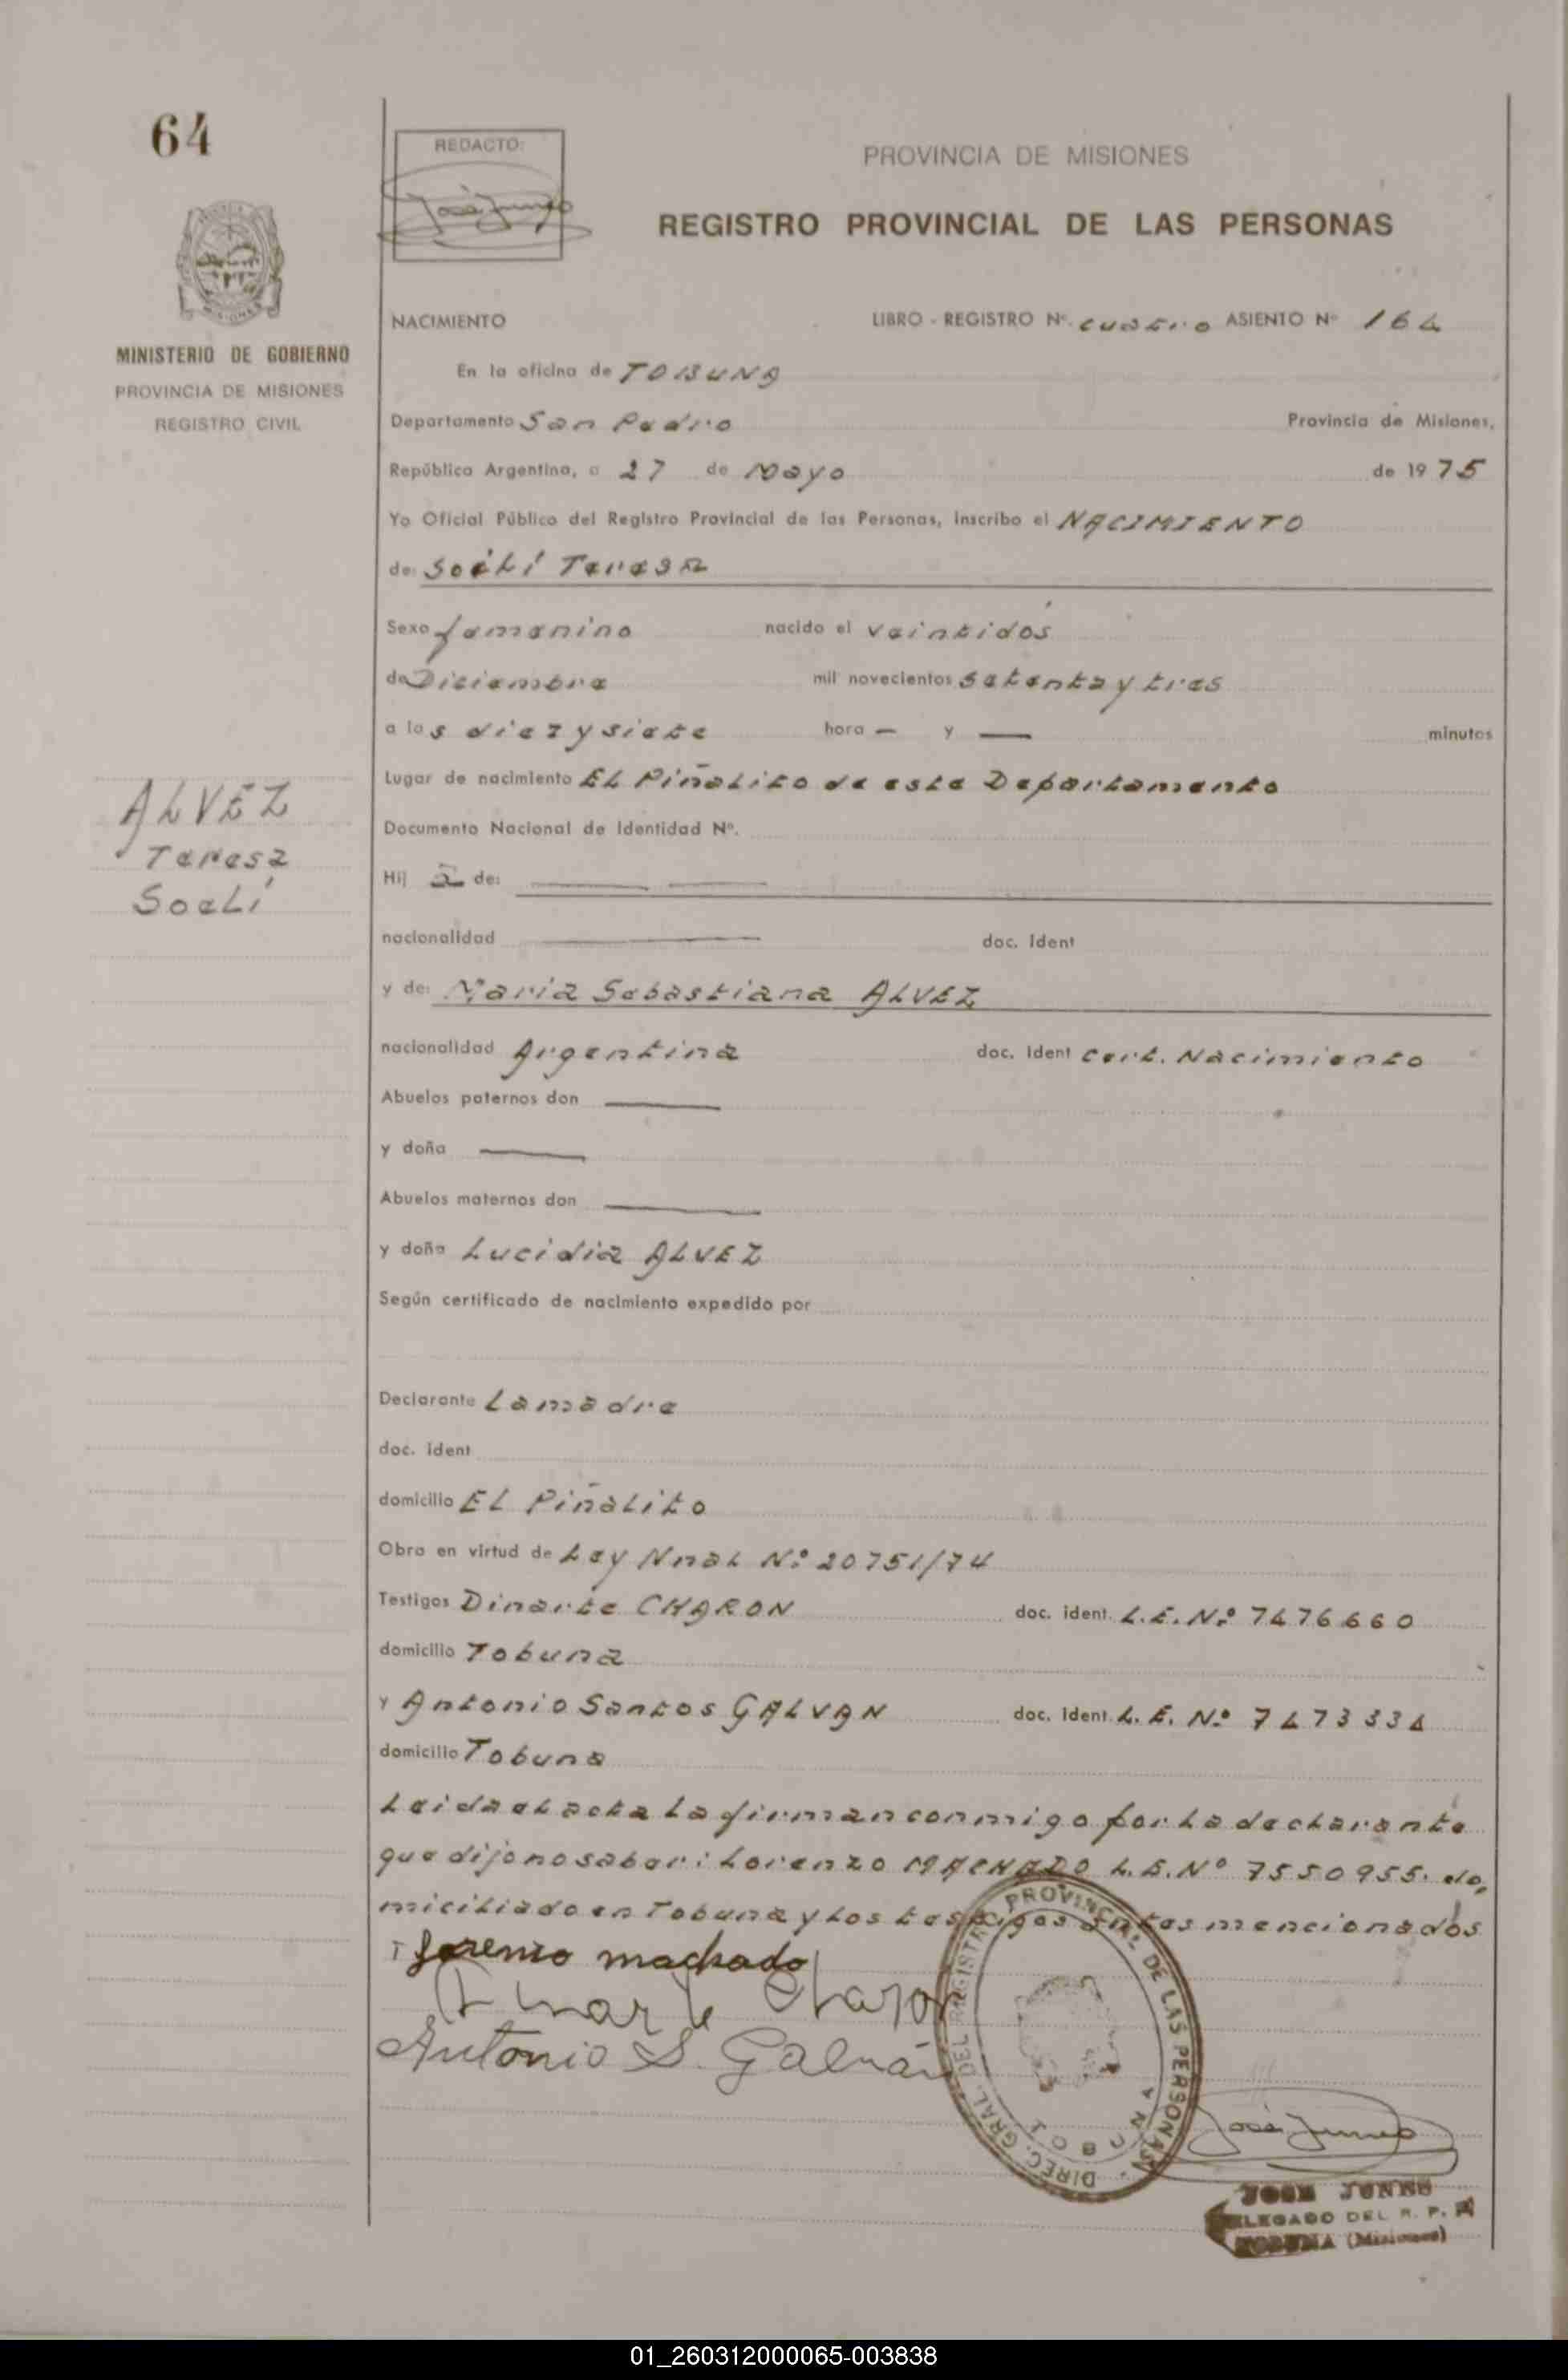 64
REDACTO:
PROVINCIA DE MISIONES
REGISTRO PROVINCIAL DE LAS PERSONAS
MINISTERIO DE GOBIERNO
PROVINCIA DE MISIONES
REGISTRO CIVIL
NACIMIENTO LIBRO - REGISTRO Nº. cuatro ASIENTO Nº 164
En la oficina de TOBUNA
Departamento San Pedro Provincia de Misiones,
República Argentina, a 27 de Mayo de 1975
Yo Oficial Público del Registro Provincial de las Personas, inscribo el NACIMIENTO
de: Soelí Teresa
Sexo femenino nacido el veintidós
de Diciembre mil novecientos setenta y tres
a las diez y siete hora — y — minutos
Lugar de nacimiento EL Piñalito de este Departamento
ALVEZ
Teresa
Soelí
Documento Nacional de Identidad Nº.
Hij a de:
nacionalidad doc. Ident
y de: Maria Sebastiana ALVEZ
nacionalidad Argentina doc. Ident Cert. Nacimiento
Abuelos paternos don
y doña
Abuelos maternos don
y doña Lucidia ALVEZ
Según certificado de nacimiento expedido por
Declarante La madre
doc. ident
domicilio EL Piñalito
Obra en virtud de Ley Nnal Nº 20751/74
Testigos Dinarte CHARON doc. ident. L.E. Nº 7476660
domicilio Tobuna
y Antonio Santos GALVAN doc. Ident. L.E. Nº 7473334
domicilio Tobuna
Leida el acta la firman conmigo por la declarante
que dijo no saber: Lorenzo MACHADO L.E. Nº 7550955. do,
miciliado en Tobuna y los testigos antes mencionados
Lorenzo machado
Dinarte Charon
Antonio S. Galván
DIREC. GRAL. DEL REGISTRO PROVINCIAL DE LAS PERSONAS
TOBUNA
José Junes
JOSE JUNES
DELEGADO DEL R. P. P.
TOBUNA (Misiones)
01_260312000065-003838